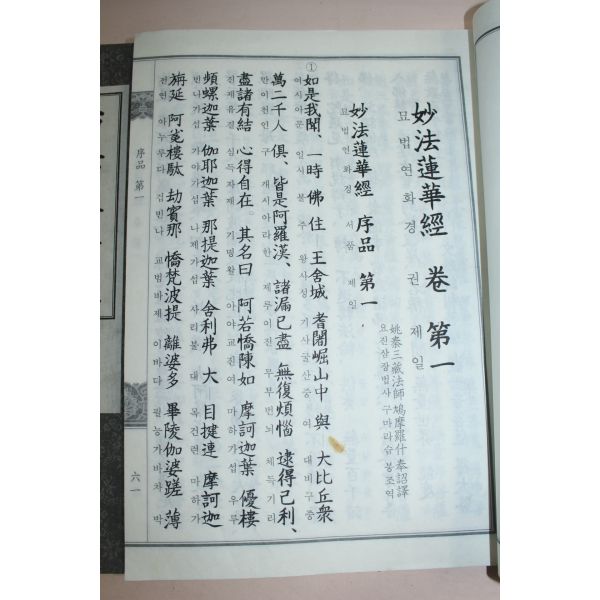 妙法蓮華經 卷 第一
묘법연화경 권 제일
姚秦三藏法師 鳩摩羅什 奉詔譯
요진삼장법사 구마라습 봉조역
妙法蓮華經 序品 第一
묘법연화경 서품 제일
①
如是我聞、一時 佛 住 王舍城 耆闍崛山中 與 大比丘衆
여시아문 일시 불 주 왕사성 기사굴산중 여 대비구중
萬二千人 俱、皆是阿羅漢、諸漏已盡 無復煩惱 逮得己利、
만이천인 구 개시아라한 제루이진 무부번뇌 체득기리
盡諸有結 心得自在。其名曰 阿若憍陳如 摩訶迦葉 優樓
진제유결 심득자재 기명왈 아야교진여 마하가섭 우루
頻螺迦葉 伽耶迦葉 那提迦葉 舍利弗 大 目揵連 摩訶迦
빈나가섭 가야가섭 나제가섭 사리불 대 목건련 마하가
旃延 阿㝹樓馱 劫賓那 憍梵波提 離婆多 畢陵伽婆蹉 薄
전연 아누루타 겁빈나 교범바제 이바다 필능가바차 박
序品 第一
六一